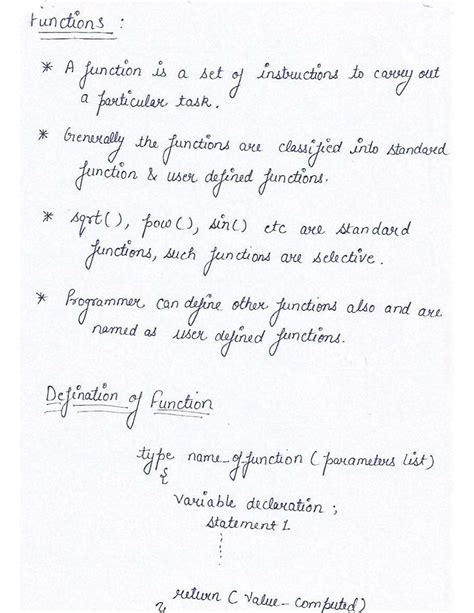 Functions :
* A function is a set of instructions to carry out
a particular task.
* Generally the functions are classified into standard
function & user defined functions.
* sqrt(), pow(), sin() etc are standard
functions, such functions are selective.
* Programmer can define other functions also and are
named as user defined functions.
Defination of Function
type name_of function ( parameters list)
{
variable declaration ;
statement 1.
return ( value_ computed)
}